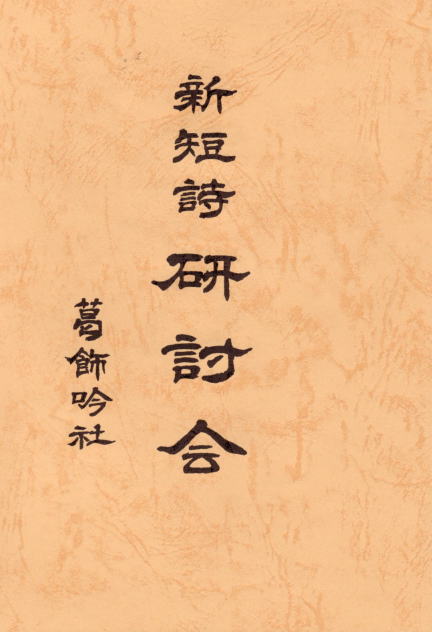 新短詩研討会
葛飾吟社